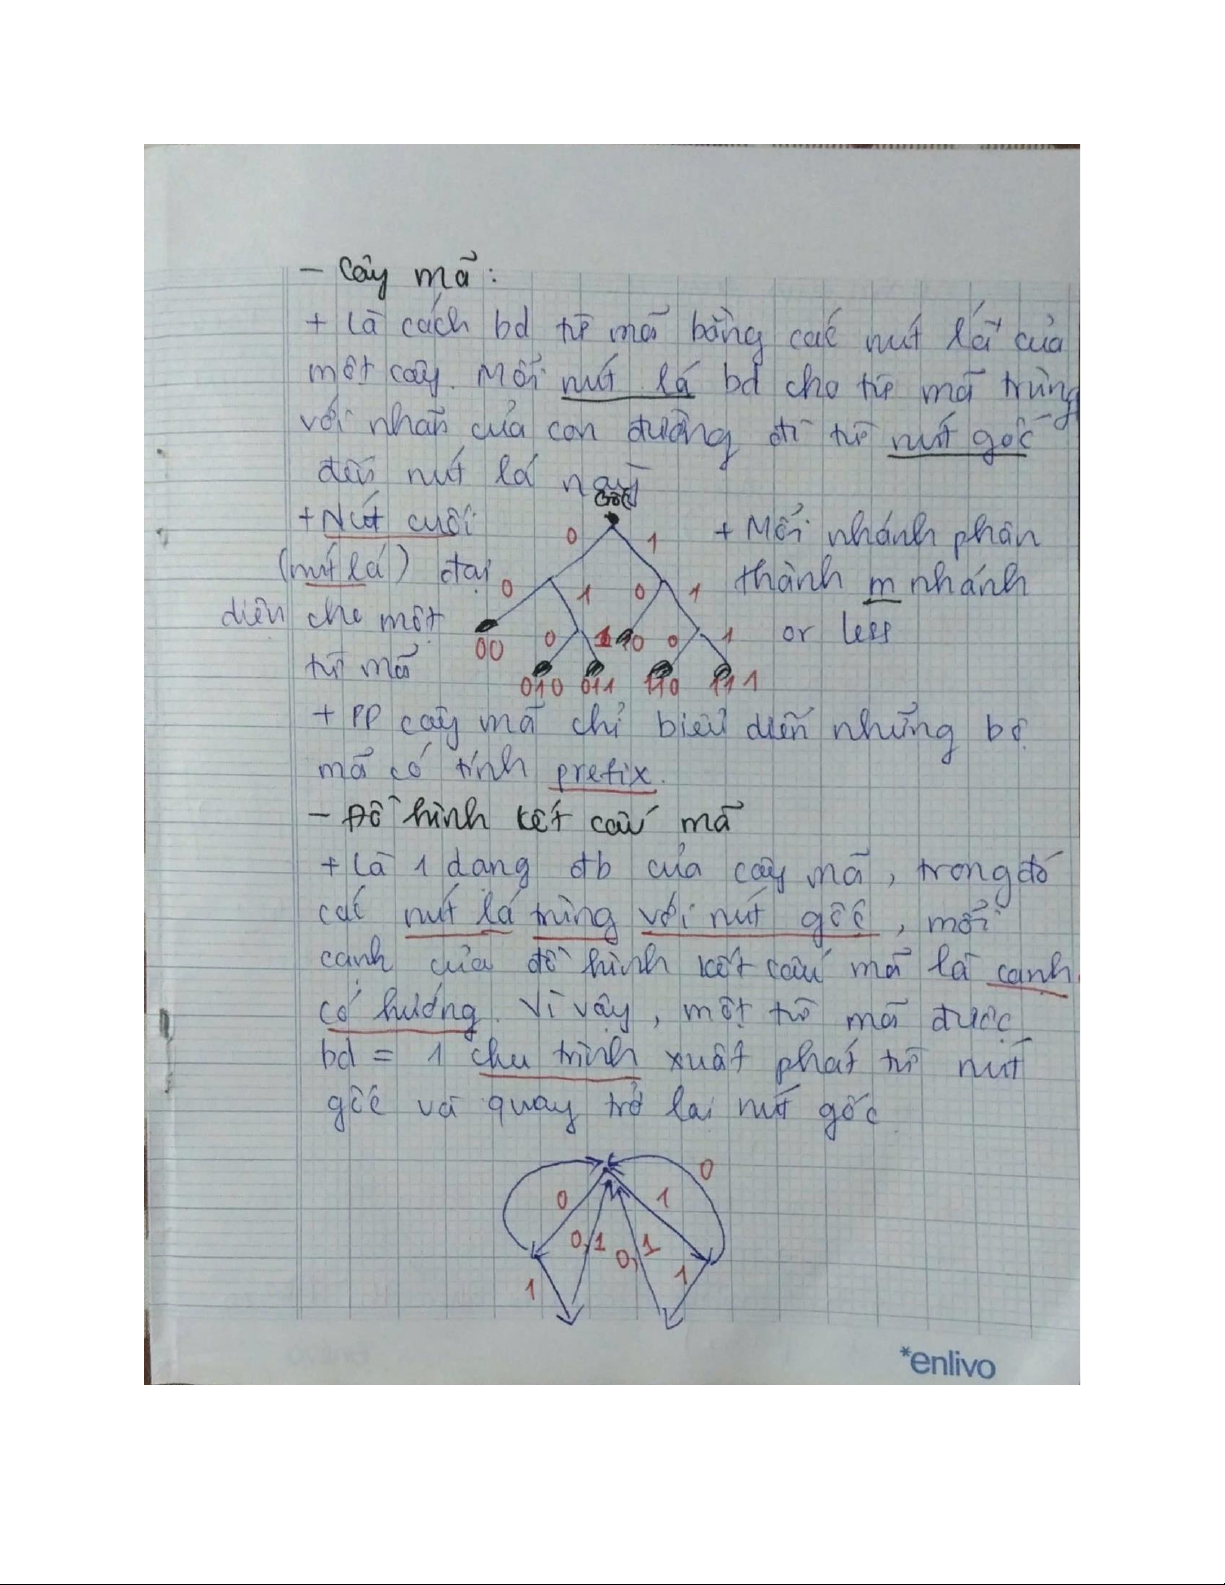 - Cây mã:
+ Là cách bd từ mã bằng các nút lá của
một cây. Mỗi nút lá bd cho từ mã trùng
với nhãn của con đường đi từ nút gốc
đến nút lá này
Gốc
+ Nút cuối
(nút lá) đại
diện cho một
từ mã
0 1
0 1 0 1
00 0 1 10 0 1
010 011 110 111
+ Mỗi nhánh phân
thành m nhánh
or less
+ PP cây mã chỉ biểu diễn những bộ
mã có tính prefix.
- Đồ hình kết cấu mã
+ Là 1 dạng đb của cây mã, trong đó
các nút lá trùng với nút gốc, mỗi
cạnh của đồ hình kết cấu mã là cạnh
có hướng. Vì vậy, một từ mã được
bd = 1 chu trình xuất phát từ nút
gốc và quay trở lại nút gốc
0 1 0
0,1 0,1
1 1
*enlivo